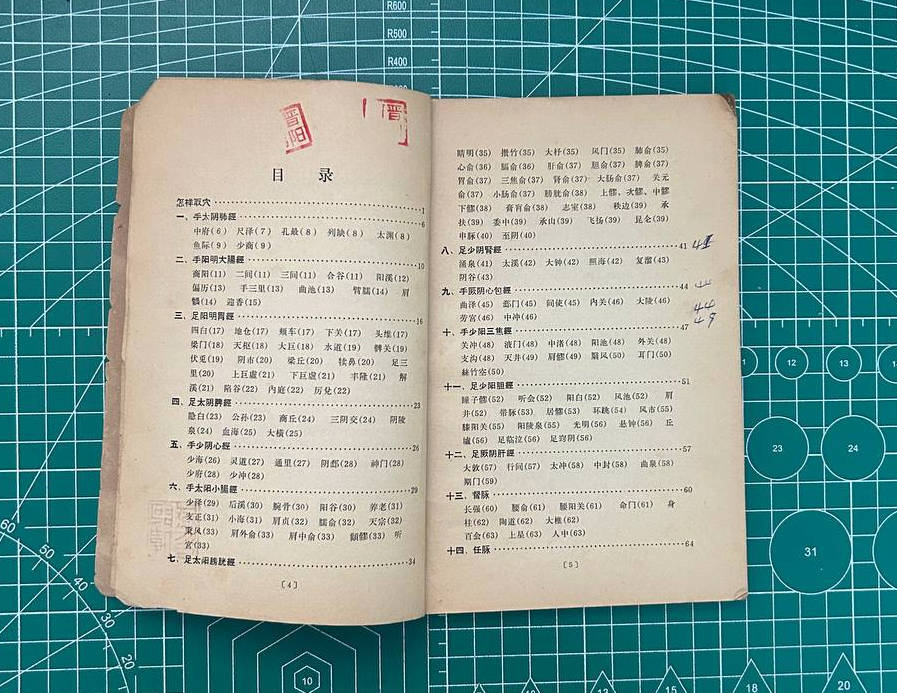 R600
R500
R400
晋阳
晋
目 录
怎样取穴 1
一、手太阴肺經 6
中府(6) 尺泽(7) 孔最(8) 列缺(8) 太渊(8)
鱼际(9) 少商(9)
二、手阳明大腸經 10
商阳(11) 二间(11) 三间(11) 合谷(11) 阳溪(12)
偏历(13) 手三里(13) 曲池(13) 臂臑(14) 肩
髃(14) 迎香(15)
三、足阳明胃經 16
四白(17) 地仓(17) 颊车(17) 下关(17) 头维(17)
梁门(18) 天枢(18) 大巨(18) 水道(19) 髀关(19)
伏兎(19) 阴市(20) 梁丘(20) 犊鼻(20) 足三
里(20) 上巨虛(21) 下巨虛(21) 丰隆(21) 解
溪(21) 陷谷(22) 内庭(22) 历兌(22)
四、足太阴脾經 23
隐白(23) 公孙(23) 商丘(24) 三阴交(24) 阴陵
泉(24) 血海(25) 大橫(25)
五、手少阴心經 26
少海(26) 灵道(27) 通里(27) 阴郄(28) 神门(28)
少府(28) 少冲(28)
六、手太阳小腸經 29
少泽(29) 后溪(30) 腕骨(30) 阳谷(30) 养老(31)
支正(31) 小海(31) 肩贞(32) 臑俞(32) 天宗(32)
秉风(33) 肩外俞(33) 肩中俞(33) 顴髎(33) 听
宮(33)
七、足太阳膀胱經 34
〔4〕
睛明(35) 攒竹(35) 大杼(35) 风门(35) 肺俞(35)
心俞(36) 膈俞(36) 肝俞(37) 胆俞(37) 脾俞(37)
胃俞(37) 三焦俞(37) 肾俞(37) 大肠俞(37) 关元
俞(37) 小肠俞(37) 膀胱俞(38) 上髎、次髎、中髎
下髎(38) 膏肓俞(38) 志室(38) 秩边(39) 承
扶(39) 委中(39) 承山(39) 飞扬(39) 昆仑(39)
申脉(40) 至阴(40)
八、足少阴腎經 41
涌泉(41) 太溪(42) 大钟(42) 照海(42) 复溜(43)
阴谷(43)
九、手厥阴心包經 44
曲泽(45) 郄门(45) 间使(45) 内关(46) 大陵(46)
劳宮(46) 中冲(46)
44
49
十、手少阳三焦經 47
关冲(48) 液门(48) 中渚(48) 阳池(48) 外关(48)
支沟(48) 天井(49) 肩髎(49) 翳风(50) 耳门(50)
絲竹空(50)
十一、足少阳胆經 51
瞳子髎(52) 听会(52) 阳白(52) 风池(52) 肩
井(52) 带脉(53) 居髎(53) 环跳(54) 风市(55)
膝阳关(55) 阳陵泉(55) 光明(56) 悬钟(56) 丘
墟(56) 足临泣(56) 足窍阴(56)
十二、足厥阴肝經 57
大敦(57) 行间(57) 太冲(58) 中封(58) 曲泉(58)
期门(59)
十三、督脉 60
长强(60) 腰俞(61) 腰阳关(61) 命门(61) 身
柱(62) 陶道(62) 大椎(62)
百会(63) 上星(63) 人中(63)
十四、任脉 64
〔5〕
12
13
23
24
31
60
50
40
30
20
10
10
13
15
18
20